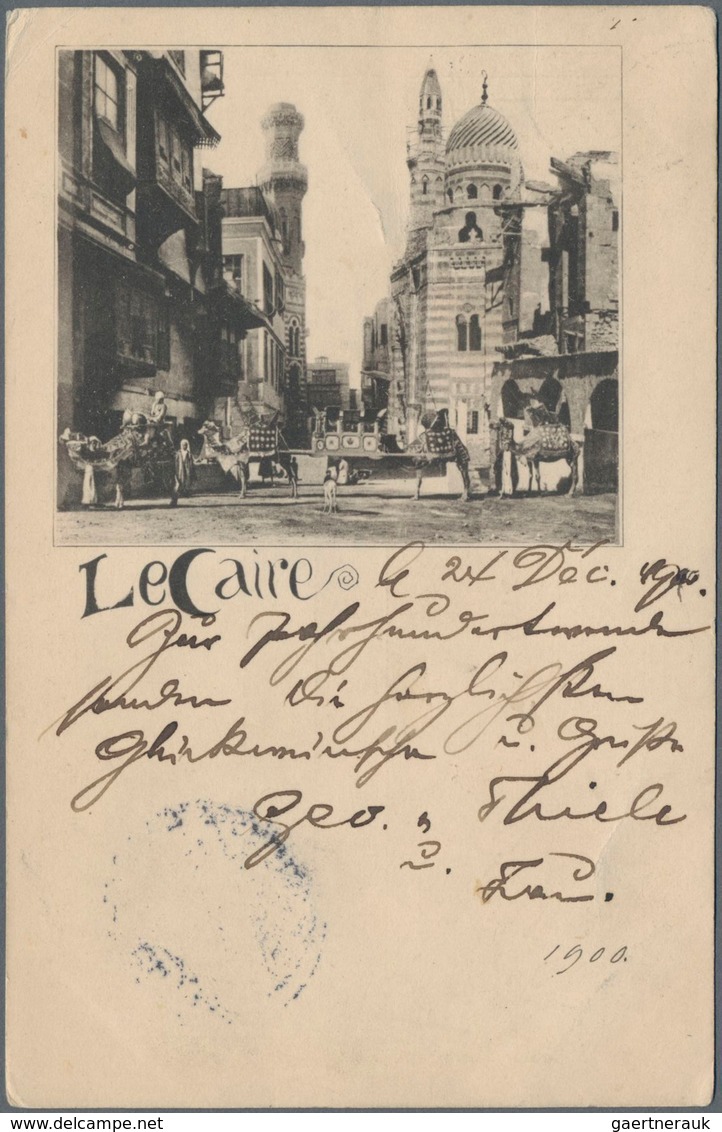 Le Caire
le 24 Déc. 1900.
Zur Jahrhundertwende
senden die herzlichsten
Glückwünsche u. Grüße
Geo. Thiele
u. Frau.
1900.
www.delcampe.net
gaertnerauk